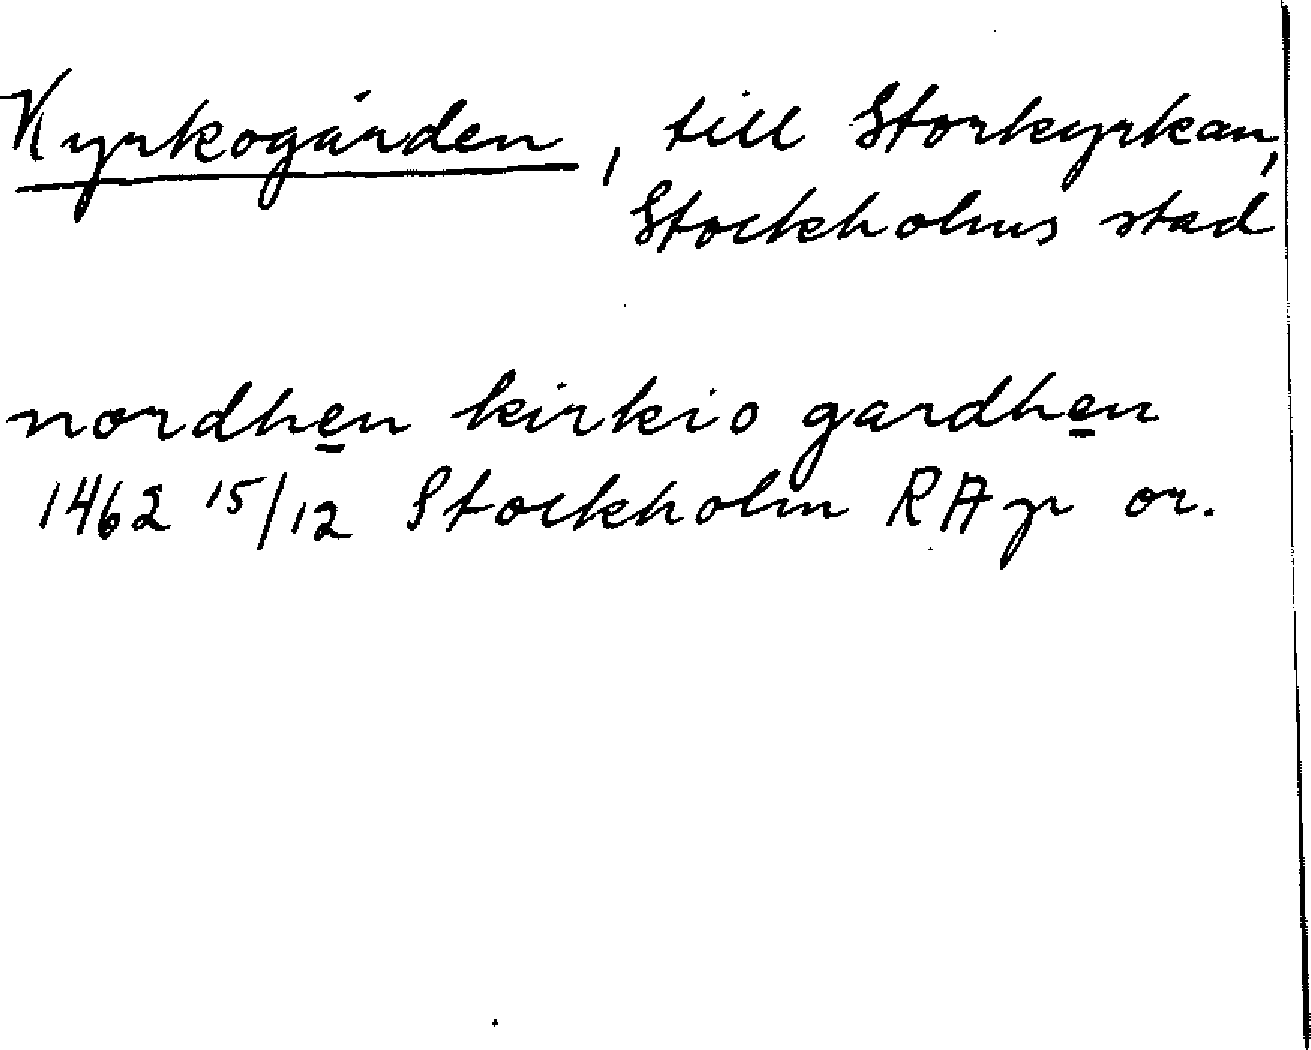 Kyrkogården, till Storkyrkan,
Stockholms stad
nordhen kirkio gardhen
1462 15/12 Stockholm RAp or.